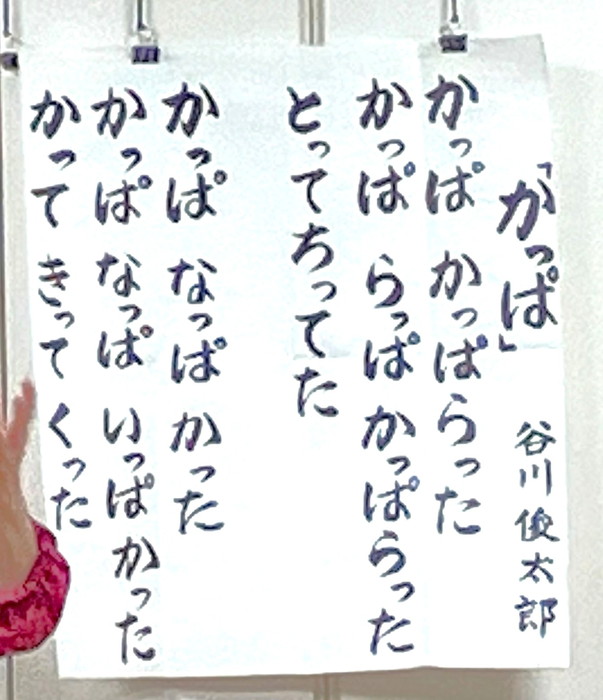 「かっぱ」 谷川俊太郎
かっぱ かっぱらった
かっぱ らっぱ かっぱらった
とってちってた
かっぱ なっぱ かった
かっぱ なっぱ いっぱかった
かって きって くった